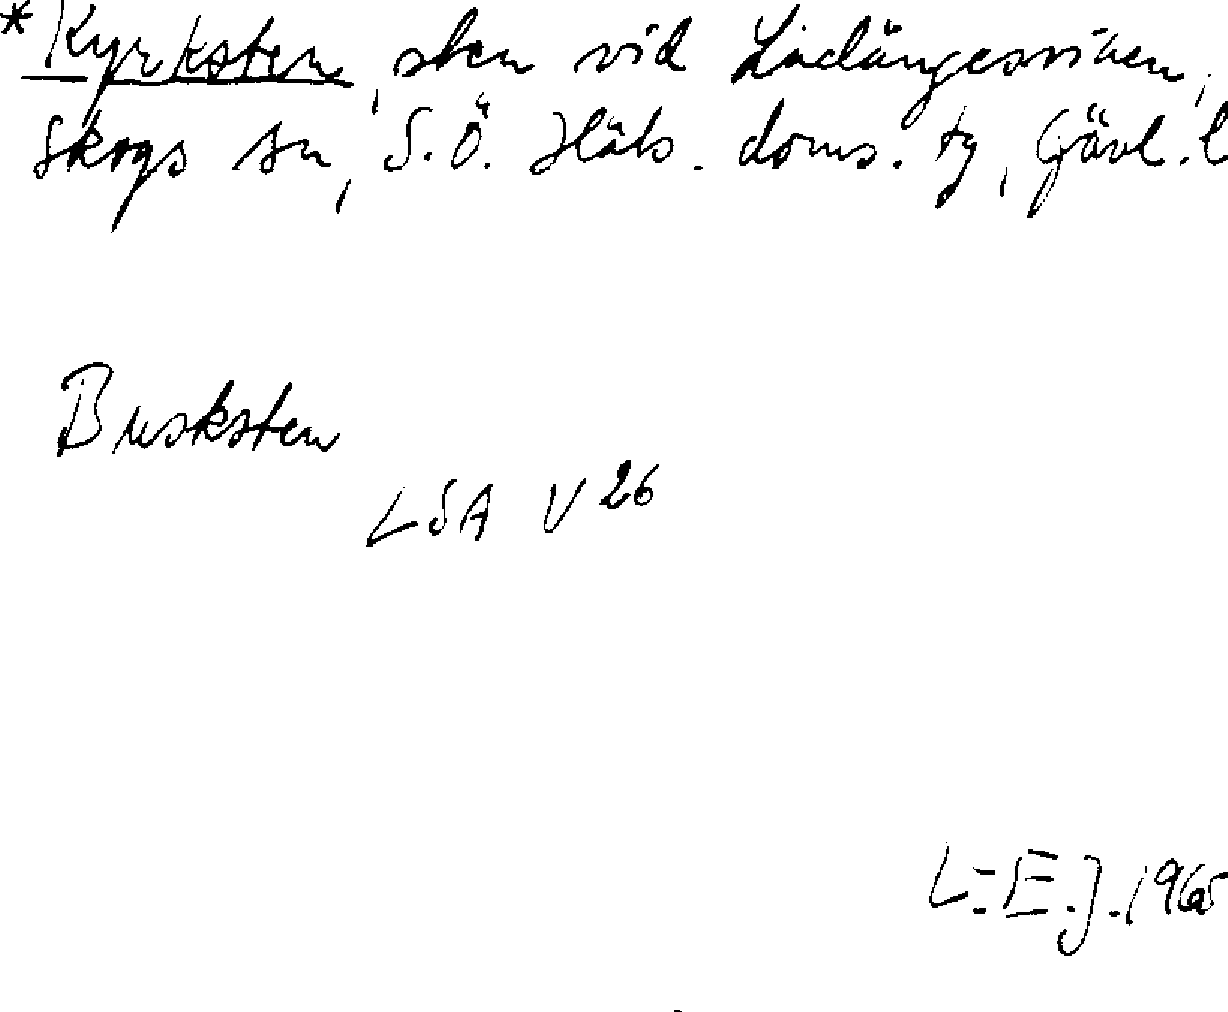 * Kyrksten, sten vid Ladängesviken,
Skogs sn, S.Ö. Häls. doms. tg, Gävl. l
Busksten
LSA V 26
L-E.J. 1965